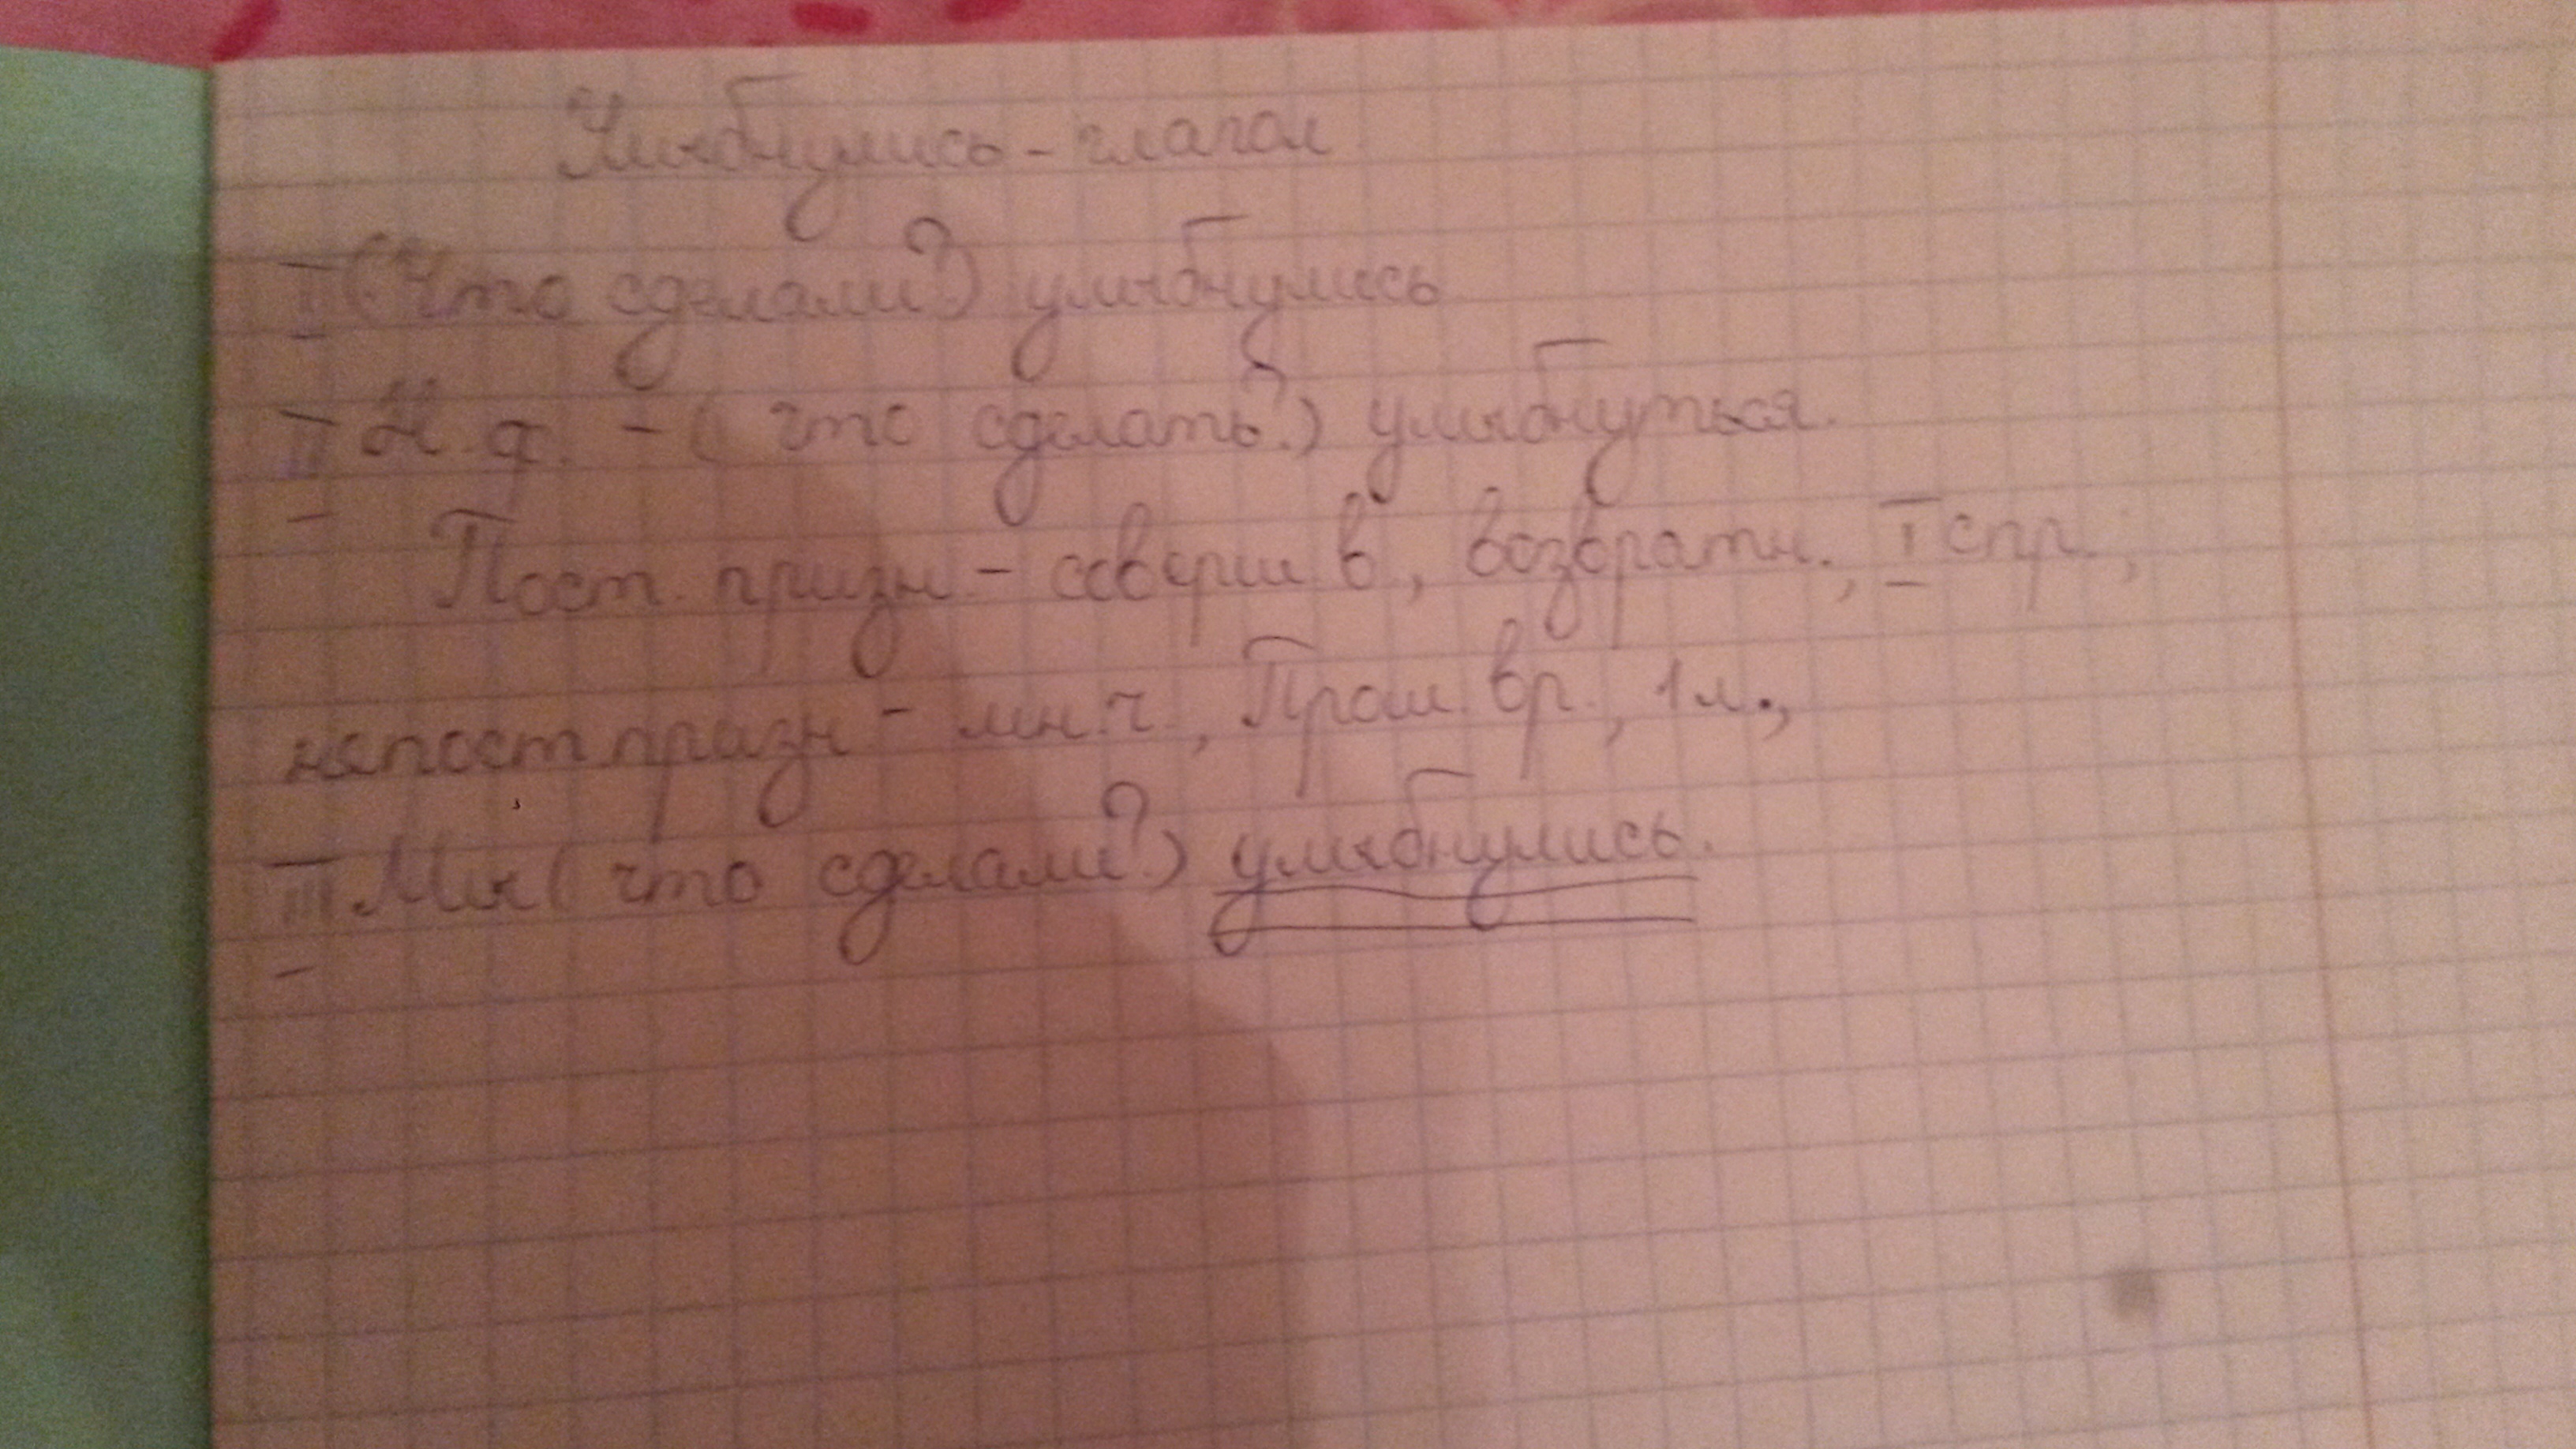 Улыбнулись - глагол
I (Что сделали?) улыбнулись
II Н.ф. - (что сделать?) улыбнуться.
Пост. призн. - соверш в, возвратн., I спр.,
непост призн - мн.ч., Прош. вр., 1 л.,
III Мы (что сделали?) улыбнулись.